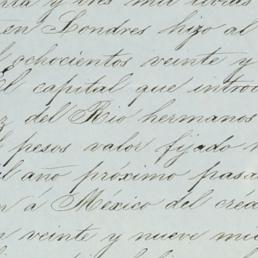 y tres mil libras
en Londres hizo al
ochocientos veinte y
El capital que introd
del Rio hermanos
pesos valor fijado
el año próximo pasa
á México del créd
veinte y nueve mi